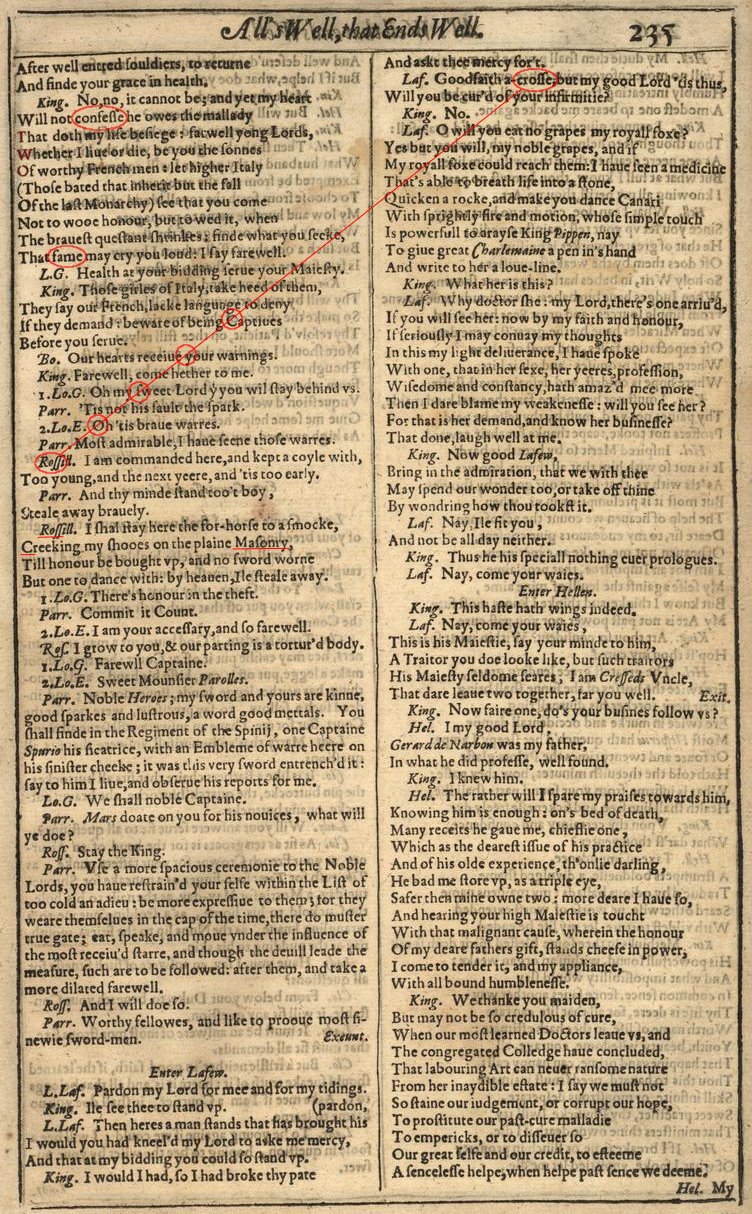 All's Well, that Ends Well.
235
After well entred souldiers, to returne
And finde your grace in health.
King. No, no, it cannot be; and yet my heart
Will not confesse he owes the mallady
That doth my life besiege: farwell yong Lords,
Whether I liue or die, be you the sonnes
Of worthy French men: let higher Italy
(Those bated that inherit but the fall
Of the last Monarchy) see that you come
Not to wooe honour, but to wed it, when
The brauest questant shrinkes: finde what you seeke,
That fame may cry you loud: I say farewell.
L.G. Health at your bidding serue your Maiesty.
King. Those girles of Italy, take heed of them,
They say our French, lacke language to deny
If they demand: beware of being Captiues
Before you serue.
Bo. Our hearts receiue your warnings.
King. Farewell, come hether to me.
1.Lo.G. Oh my sweet Lord ẏ you wil stay behind vs.
Parr. 'Tis not his fault the spark.
2.Lo.E. Oh 'tis braue warres.
Parr. Most admirable, I haue seene those warres.
Rossill. I am commanded here, and kept a coyle with,
Too young, and the next yeere, and 'tis too early.
Parr. And thy minde stand too't boy,
Steale away brauely.
Rossill. I shal stay here the for-horse to a smocke,
Creeking my shooes on the plaine Masonry,
Till honour be bought vp, and no sword worne
But one to dance with: by heauen, Ile steale away.
1.Lo.G. There's honour in the theft.
Parr. Commit it Count.
2.Lo.E. I am your accessary, and so farewell.
Ros. I grow to you, & our parting is a tortur'd body.
1.Lo.G. Farewll Captaine.
2.Lo.E. Sweet Mounsier Parolles.
Parr. Noble Heroes; my sword and yours are kinne,
good sparkes and lustrous, a word good mettals. You
shall finde in the Regiment of the Spinij, one Captaine
Spurio his sicatrice, with an Embleme of warre heere on
his sinister cheeke; it was this very sword entrench'd it:
say to him I liue, and obserue his reports for me.
Lo.G. We shall noble Captaine.
Parr. Mars doate on you for his nouices, what will
ye doe?
Ross. Stay the King.
Parr. Vse a more spacious ceremonie to the Noble
Lords, you haue restrain'd your selfe within the List of
too cold an adieu: be more expressiue to them; for they
weare themselues in the cap of the time, there do muster
true gate; eat, speake, and moue vnder the influence of
the most receiu'd starre, and though the deuill leade the
measure, such are to be followed: after them, and take a
more dilated farewell.
Ross. And I will doe so.
Parr. Worthy fellowes, and like to prooue most si-
newie sword-men.
Exeunt.
Enter Lafew.
L.Laf. Pardon my Lord for mee and for my tidings.
King. Ile see thee to stand vp.
(pardon,
L.Laf. Then heres a man stands that has brought his
I would you had kneel'd my Lord to aske me mercy,
And that at my bidding you could so stand vp.
King. I would I had, so I had broke thy pate
And askt thee mercy for't.
Laf. Goodfaith a-crosse, but my good Lord 'tis thus,
Will you be cur'd of your infirmitie?
King. No.
Laf. O will you eat no grapes my royall foxe?
Yes but you will, my noble grapes, and if
My royall foxe could reach them: I haue seen a medicine
That's able to breath life into a stone,
Quicken a rocke, and make you dance Canari
With sprightly fire and motion, whose simple touch
Is powerfull to arayse King Pippen, nay
To giue great Charlemaine a pen in's hand
And write to her a loue-line.
King. What her is this?
Laf. Why doctor she: my Lord, there's one arriu'd,
If you will see her: now by my faith and honour,
If seriously I may conuay my thoughts
In this my light deliuerance, I haue spoke
With one, that in her sexe, her yeeres, profession,
Wisedome and constancy, hath amaz'd mee more
Then I dare blame my weakenesse: will you see her?
For that is her demand, and know her businesse?
That done, laugh well at me.
King. Now good Lafew,
Bring in the admiration, that we with thee
May spend our wonder too, or take off thine
By wondring how thou tookst it.
Laf. Nay, Ile fit you,
And not be all day neither.
King. Thus he his speciall nothing euer prologues.
Laf. Nay, come your waies.
Enter Hellen.
King. This haste hath wings indeed.
Laf. Nay, come your waies,
This is his Maiestie, say your minde to him,
A Traitor you doe looke like, but such traitors
His Maiesty seldome feares, I am Cresseds Vncle,
That dare leaue two together, far you well.
Exit.
King. Now faire one, do's your busines follow vs?
Hel. I my good Lord,
Gerard de Narbon was my father,
In what he did professe, well found.
King. I knew him.
Hel. The rather will I spare my praises towards him,
Knowing him is enough: on's bed of death,
Many receits he gaue me, chieflie one,
Which as the dearest issue of his practice
And of his olde experience, th'onlie darling,
He bad me store vp, as a triple eye,
Safer then mine owne two: more deare I haue so,
And hearing your high Maiestie is toucht
With that malignant cause, wherein the honour
Of my deare fathers gift, stands cheefe in power,
I come to tender it, and my appliance,
With all bound humblenesse.
King. We thanke you maiden,
But may not be so credulous of cure,
When our most learned Doctors leaue vs, and
The congregated Colledge haue concluded,
That labouring Art can neuer ransome nature
From her inaydible estate: I say we must not
So staine our iudgement, or corrupt our hope,
To prostitute our past-cure malladie
To empericks, or to disseuer so
Our great selfe and our credit, to esteeme
A sencelesse helpe, when helpe past sence we deeme.
Hel. My